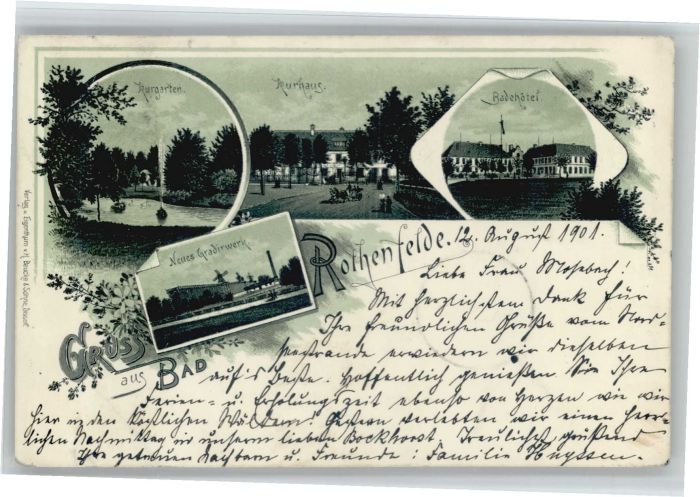 Kurgarten.
Kurhaus.
Badehôtel.
Neues Gradirwerk
Gruss
aus Bad
Rothenfelde. 12. August 1901.
Liebe Frau Mosebach!
Mit herzlichstem Dank für
Ihre freundlichen Grüße vom Nord-
seestrande erwiedern wir dieselben
auf's Beste. Hoffentlich genießen Sie Ihre
Ferien- u. Erholungszeit ebenso von Herzen wie wir
hier in den köstlichen Wäldern! Gestern verlebten wir einen herr-
lichen Nachmittag in unserm lieben Bockhorst. Treulichst grüßend
Ihre getreuen Nachbarn u. Freunde: Familie Huyssen.
Verlag u. Eigenthum v. H.